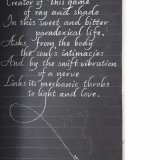 Creator of this game
of ray and shade
In this sweet and bitter
paradoxical life,
Asks from the body
the soul's intimacies
And by the swift vibration
of a nerve
Links its mechanic throbs
to light and love.